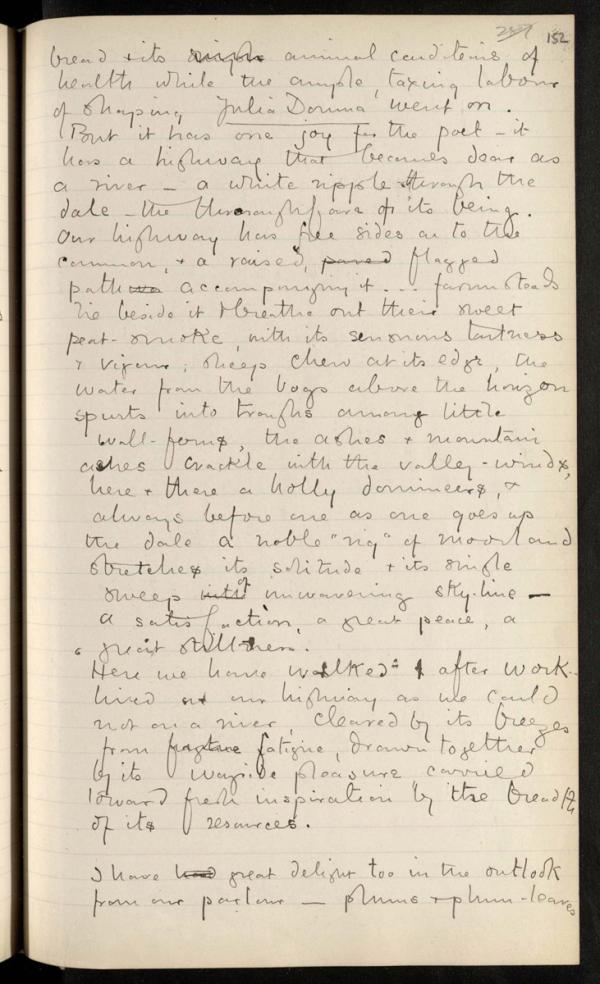 152
bread & its animal conditions of
health while the ample, taxing labour
of shaping Julia Domna went on.
But it has one joy for the poet – it
has a highway that becomes dear as
a river – a white ripple through the
dale – the thoroughfare of its being.
Our highway has free sides as to the
common, & a raised, paved flagged
path accompanying it... farmsteads
lie beside it & breathe out their sweet
peat-smoke, with its sensuous tartness
& vigour; sheep chew at its edge, the
water from the bogs above the horizon
spurts into troughs among little
wall-ferns, the ashes & mountain
ashes crackle with the valley-winds,
here & there a holly domineers, &
always before one as one goes up
the dale a noble "rig" of moorland
stretches its solitude & its single
sweep with of unwavering sky-line —
a satisfaction, a great peace, a
great stillness.
Here we have walked after work.
lived our highway as we could
not on a river, cleared by its breezes
from fatigue, drawn together
by its wayside pleasure carried
toward fresh inspiration by the breadth
of its resources.
I have had great delight too in the outlook
from our parlour — plums & plum-leaves